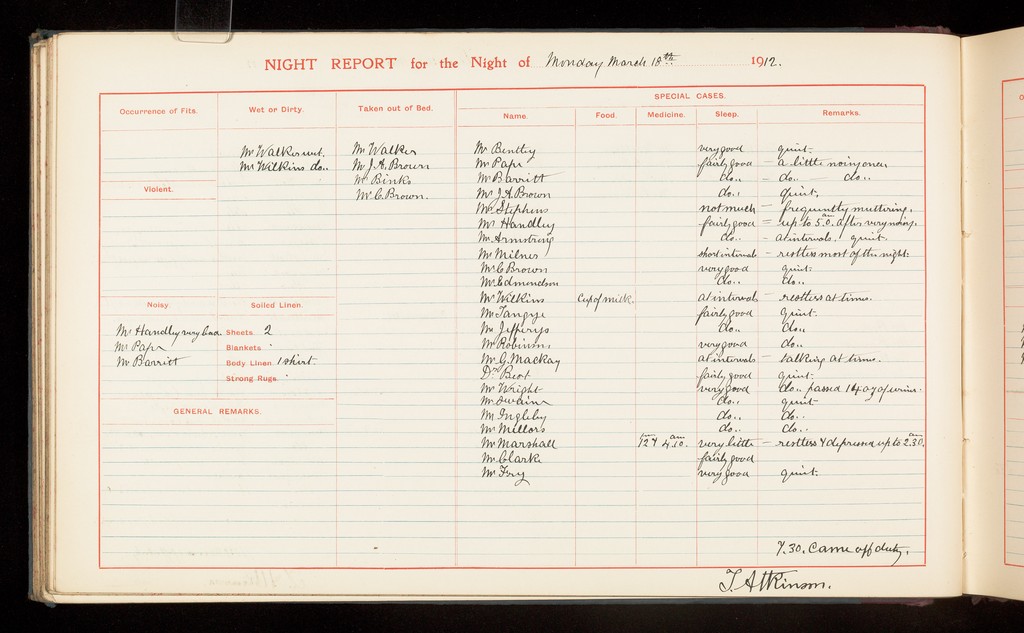 NIGHT REPORT for the Night of Monday March 18th 1912.
SPECIAL CASES.
Occurrence of Fits. Wet or Dirty. Taken out of Bed. Name. Food. Medicine. Sleep. Remarks.
Mr Walker wet. Mr Walker Mr Bentley very good quiet.
Mr Wilkins do.. Mr J.A. Brown Mr Pape fairly good - a little noisy once
Mr Binks Mr Barritt do.. - do.. - do..
Violent. Mr C. Brown. Mr J.A Brown do.. quiet.
Mr Stephens not much - frequently muttering.
Mr Handley fairly good - up to 5.0. am after very noisy.
Mr Armstrong do.. - at intervals, quiet.
Mr Milner short intervals - restless most of the night.
Mr C Brown very good quiet.
Mr Edmondson do.. do..
Noisy Soiled Linen. Mr Wilkins Cup of milk. at intervals - restless at times.
Mr Tangye fairly good quiet.
Mr Handley very bad. Sheets 2 Mr Jefferys do.. do..
Mr Pape Blankets Mr Robinson very good do..
Mr Barritt Body Linen. 1 shirt. Mr G. MacKay at intervals - talking at times.
Strong Rugs. Dr Best fairly good quiet.
Mr Wright very good do.. passed 14 oz of urine.
Mr Swain do.. quiet
GENERAL REMARKS. Mr Ingleby do.. do..
Mr Mellors do.. do..
Mr Marshall 12 & 4.10. am very little - restless & depressed up to 2.30. am
Mr Clarke fairly good
Mr Fry very good quiet.
7.30. Came off duty.
T. Atkinson.